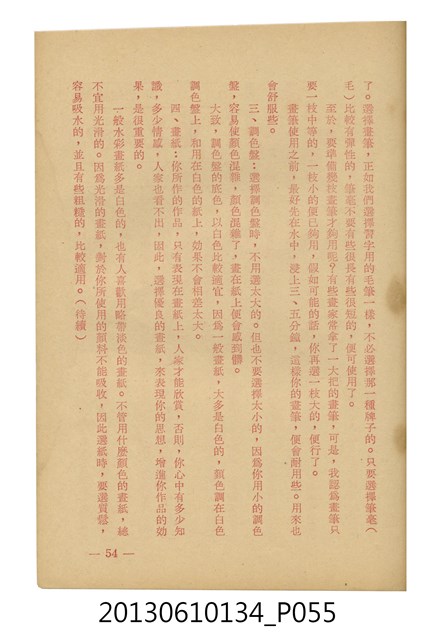 了。選擇畫筆，正如我們選擇習字用的毛筆一樣，不必選擇那一種牌子的。只要選擇筆毫（
毛）比較有彈性的，筆毫不要有些很長有些很短的，便可使用了。
至於，要準備幾枝畫筆才夠用呢？有些畫家常拿了一大把的畫筆，可是，我認爲畫筆只
要一枝中等的，一枝小的便已夠用，假如可能的話，你再選一枝大的，便行了。
畫筆使用之前，最好先在水中，浸上三、五分鐘，這樣你的畫筆，便會耐用些。用來也
會舒服些。
三、調色盤：選擇調色盤時，不用選太大的。但也不要選擇太小的，因爲你用小的調色
盤，容易使顏色混雜，顏色混雜了，畫在紙上便會感到髒。
大致，調色盤的底色，以白色比較適宜，因爲一般畫紙，大多是白色的，顏色調在白色
調色盤上，和用在白色的紙上，効果不會相差太大。
四、畫紙：你所作的作品，只有表現在畫紙上，人家才能欣賞，否則，你心中有多少知
識，多少情感，人家也看不出，因此，選擇優良的畫紙，來表現你的思想，增進你作品的効
果，是很重要的。
一般水彩畫紙多是白色的，也有人喜歡用略帶淡色的畫紙。不管用什麼顏色的畫紙，總
不宜用光滑的。因爲光滑的畫紙，對於你所使用的顏料不能吸收，因此選紙時，要選質鬆，
容易吸水的，並且有些粗糙的，比較適用。（待續）
— 54 —
20130610134_P055